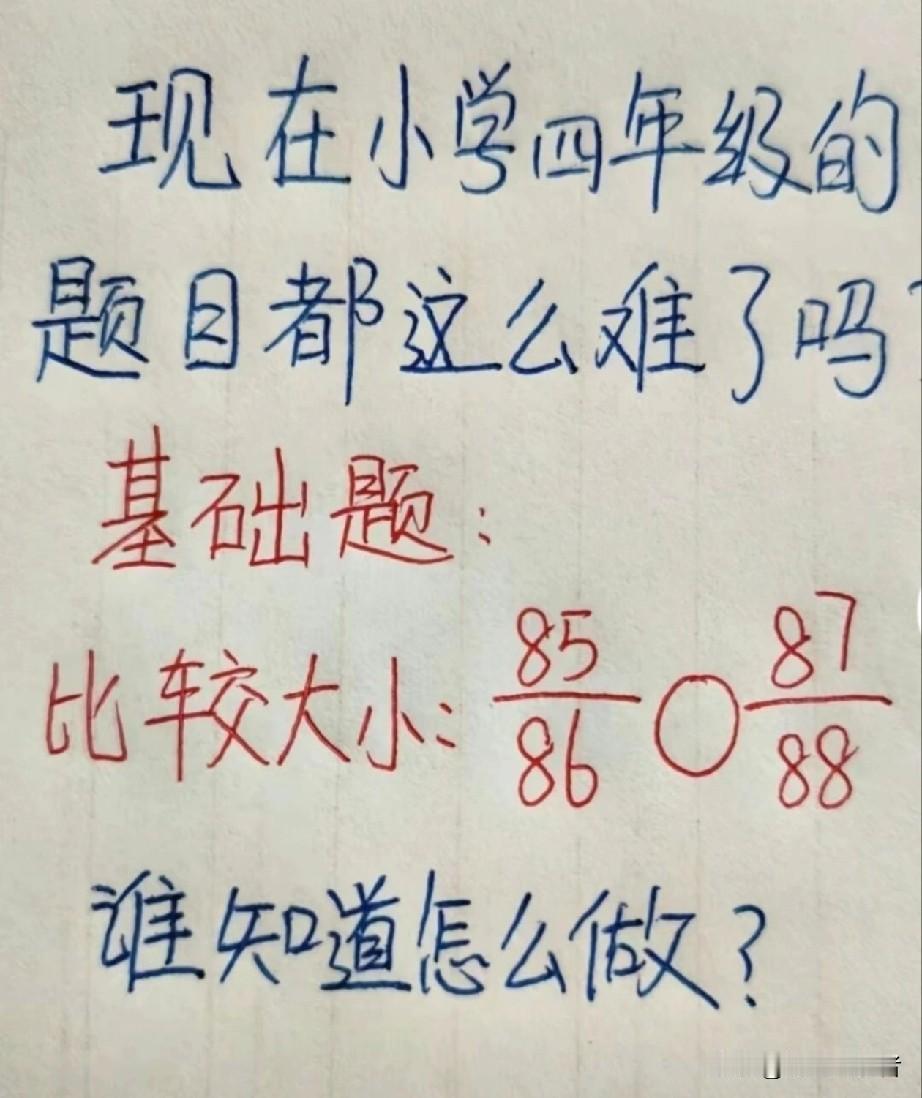 现在小学四年级的
题目都这么难了吗?
基础题:
比较大小: 85/86 ○ 87/88
谁知道怎么做?